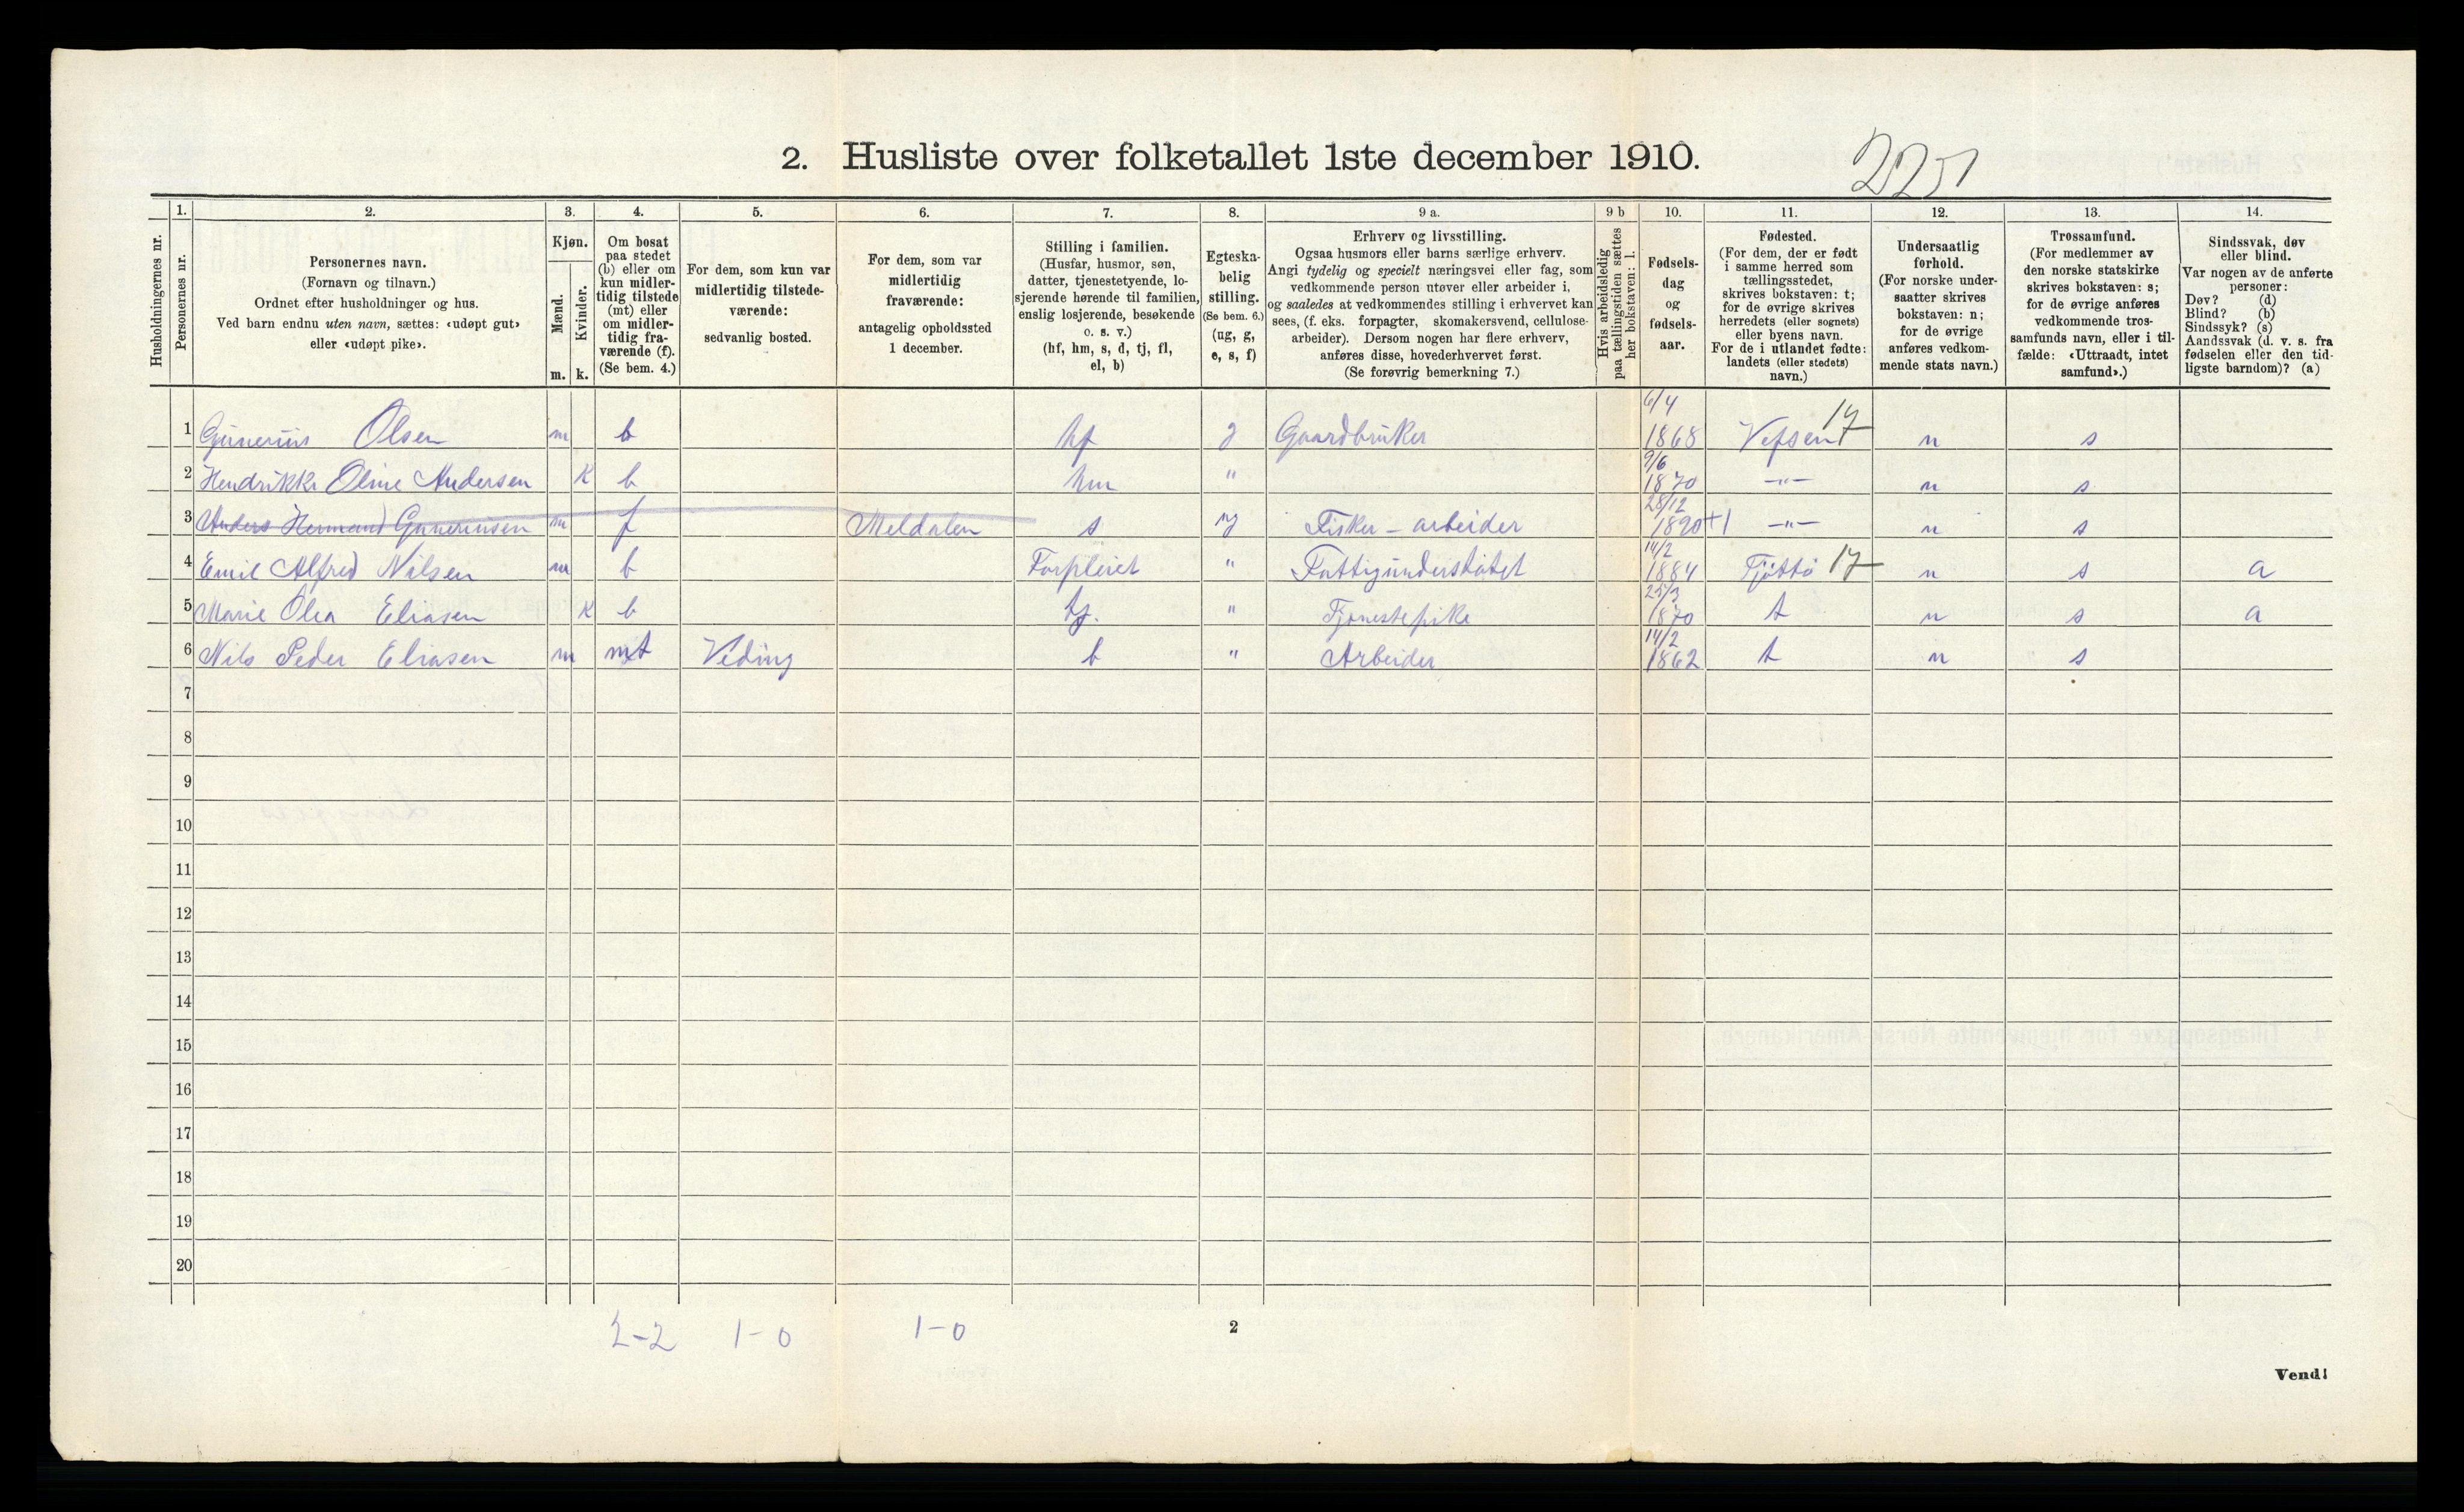 2. Husliste over folketallet 1ste december 1910.
2251
1. 2. 3. 4. 5. 6. 7. 8. 9 a. 9 b 10. 11. 12. 13. 14.
Husholdningernes nr.
Personernes nr.
Personernes navn.
(Fornavn og tilnavn.)
Ordnet efter husholdninger og hus.
Ved barn endnu uten navn, sættes: «udøpt gut»
eller «udøpt pike».
Kjøn.
Mænd.
Kvinder.
m. k.
Om bosat
paa stedet
(b) eller om
kun midler-
tidig tilstede
(mt) eller
om midler-
tidig fra-
værende (f).
(Se bem. 4.)
For dem, som kun var
midlertidig tilstede-
værende:
sedvanlig bosted.
For dem, som var
midlertidig
fraværende:
antagelig opholdssted
1 december.
Stilling i familien.
(Husfar, husmor, søn,
datter, tjenestetyende, lo-
sjerende hørende til familien,
enslig losjerende, besøkende
o. s. v.)
(hf, hm, s, d, tj, fl,
el, b)
Egteska-
belig
stilling.
(Se bem. 6.)
(ug, g,
e, s, f)
Erhverv og livsstilling.
Ogsaa husmors eller barns særlige erhverv.
Angi tydelig og specielt næringsvei eller fag, som
vedkommende person utøver eller arbeider i,
og saaledes at vedkommendes stilling i erhvervet kan
sees, (f. eks. forpagter, skomakersvend, cellulose-
arbeider). Dersom nogen har flere erhverv,
anføres disse, hovederhvervet først.
(Se forøvrig bemerkning 7.)
Hvis arbeidsledig
paa tællingstiden sættes
her bokstaven: l.
Fødsels-
dag
og
fødsels-
aar.
Fødested.
(For dem, der er født
i samme herred som
tællingsstedet,
skrives bokstaven: t;
for de øvrige skrives
herredets (eller sognets)
eller byens navn.
For de i utlandet fødte:
landets (eller stedets)
navn.)
Undersaatlig
forhold.
(For norske under-
saatter skrives
bokstaven: n;
for de øvrige
anføres vedkom-
mende stats navn.)
Trossamfund.
(For medlemmer av
den norske statskirke
skrives bokstaven: s;
for de øvrige anføres
vedkommende tros-
samfunds navn, eller i til-
fælde: «Uttraadt, intet
samfund».)
Sindssvak, døv
eller blind.
Var nogen av de anførte
personer:
Døv? (d)
Blind? (b)
Sindssyk? (s)
Aandssvak (d. v. s. fra
fødselen eller den tid-
ligste barndom)? (a)
1 Gunerius Olsen m b hf g Gaardbruker 6/4 1868 Vefsen 17 n s
2 Hendrikke Oline Andersen K b hm " 9/6 1870 -"- n s
3 Anders Hermand Gunerinsen m f Meldalen s ug Fisker - arbeider 28/12 1890 +1 -"- n s
4 Emil Alfred Nilsen m b Forpleiet " Fattigunderstøtet 14/2 1884 Tjøttø 17 n s a
5 Marie Olea Eliasen K b tj. " Tjenestepike 25/3 1870 t n s a
6 Nils Peder Eliasen m mt Veding b " Arbeider 14/2 1862 t n s
7
8
9
10
11
12
13
14
15
16
17
18
19
20
2-2 1-0 1-0
2
Vend!